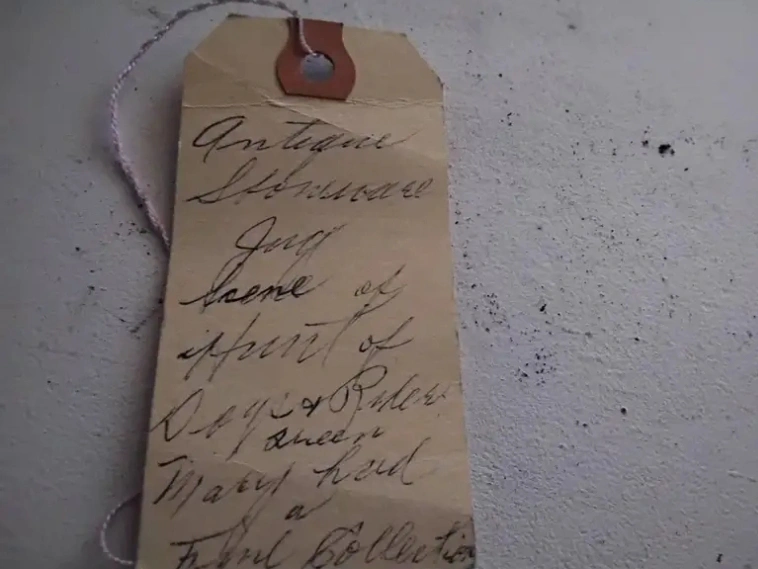 Antique
Stoneware
Jug
Scene of
Hunt of
Dogs & Riders
Queen
Mary had
a
Fine Collection